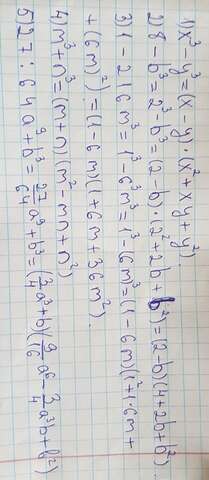 1) x³ - y³ = (x - y) · (x² + xy + y²)
2) 8 - b³ = 2³ - b³ = (2 - b) · (2² + 2b + b²) = (2 - b)(4 + 2b + b²)...
3) 1 - 216m³ = 1³ - 6³m³ = 1³ - 6m³ = (1 - 6m)(1² + 1·6m +
+ (6m)²) = (1 - 6m)(1 + 6m + 36m²).
4) m³ + n³ = (m + n)(m² - mn + n²)
5) 27 : 64a⁹ + b³ = 27/64 a⁹ + b³ = (3/4 a³ + b)(9/16 a⁶ - 3/4 a³b + b²)